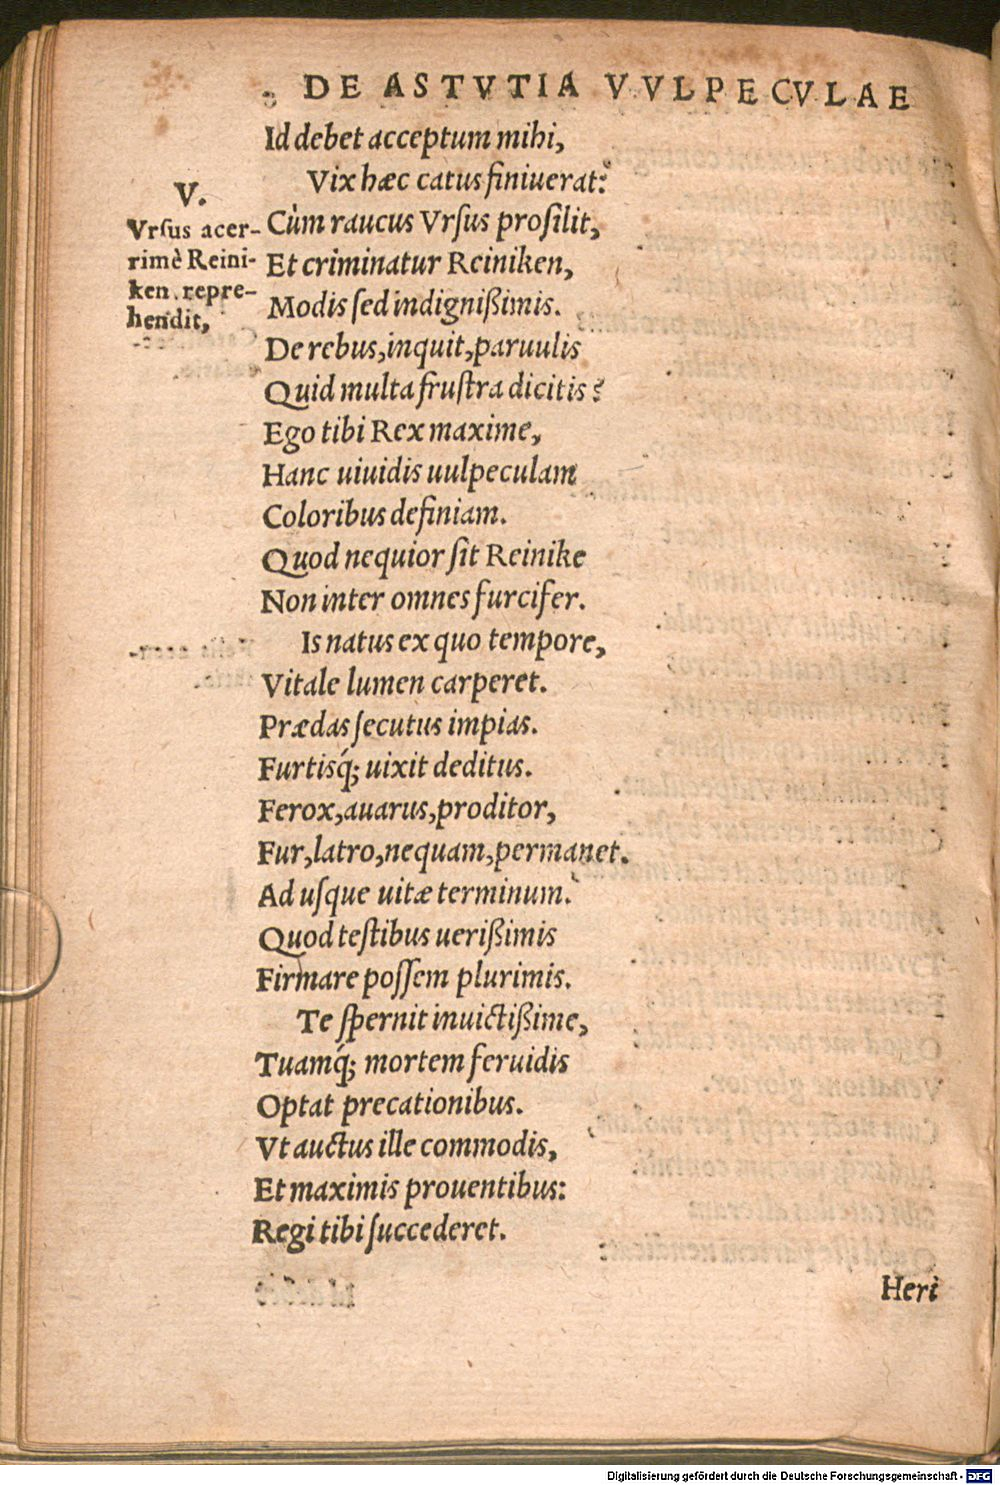 DE ASTVTIA VVLPECVLAE
Id debet acceptum mihi,
Vix hæc catus finiuerat:
V.
Vrſus acer-
rimè Reini-
ken repre-
hendit,
Cùm raucus Vrſus proſilit,
Et criminatur Reiniken,
Modis ſed indignißimis.
De rebus, inquit, paruulis
Quid multa fruſtra dicitis?
Ego tibi Rex maxime,
Hanc uiuidis uulpeculam
Coloribus definiam.
Quod nequior ſit Reinike
Non inter omnes furcifer.
Is natus ex quo tempore,
Vitale lumen carperet.
Prædas ſecutus impias.
Furtisq́; uixit deditus.
Ferox, auarus, proditor,
Fur, latro, nequam, permanet.
Ad uſque uitæ terminum.
Quod teſtibus uerißimis
Firmare poſſem plurimis.
Te ſpernit inuictißime,
Tuamq́; mortem feruidis
Optat precationibus.
Vt auctus ille commodis,
Et maximis prouentibus:
Regi tibi ſuccederet.
Heri
Digitalisierung gefördert durch die Deutsche Forschungsgemeinschaft - DFG